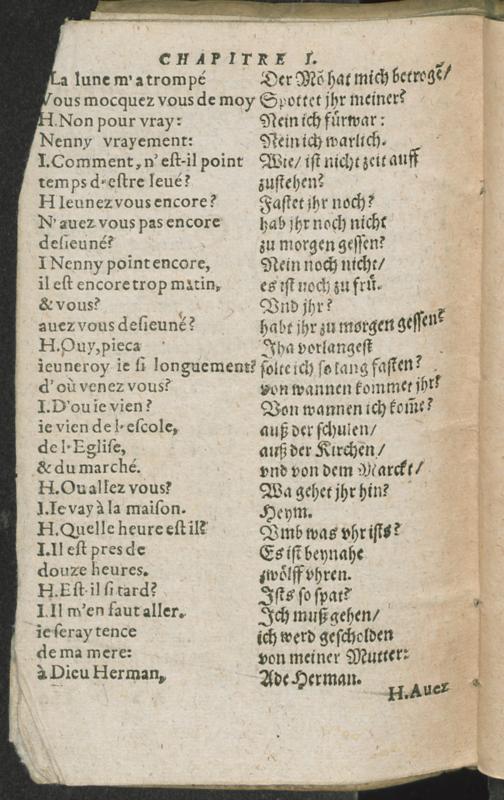 CHAPITRE I.
La lune m'a trompé
Vous mocquez vous de moy
H. Non pour vray:
Nenny vrayement:
I. Comment, n'est-il point
temps d'estre leué?
H Ieunez vous encore?
N'auez vous pas encore
desieuné?
I Nenny point encore,
il est encore trop matin,
& vous?
auez vous desieuné?
H. Ouy, pieca
ieuneroy ie si longuement?
d'où venez vous?
I. D'ou ie vien?
ie vien de l'escole,
de l'Eglise,
& du marché.
H. Ou allez vous?
I. Ie vay à la maison.
H. Quelle heure est il?
I. Il est pres de
douze heures.
H. Est-il si tard?
I. Il m'en faut aller.
ie seray tence
de ma mere:
à Dieu Herman,
Der Mō hat mich betrogē/
Spottet jhr meiner?
Nein ich fürwar:
Nein ich warlich.
Wie/ ist nicht zeit auff
zustehen?
Fastet jhr noch?
hab jhr noch nicht
zu morgen gessen?
Nein noch nicht/
es ist noch zu frü.
Vnd jhr?
habt jhr zu morgen gessen?
Jha vorlangest
solte ich so lang fasten?
von wannen kommet jhr?
Von wannen ich kom̄e?
auß der schulen/
auß der Kirchen/
vnd von dem Marckt/
Wa gehet jhr hin?
Heym.
Vmb was vhr ists?
Es ist beynahe
zwölff vhren.
Ists so spat?
Ich muß gehen/
ich werd gescholden
von meiner Mutter:
Ade Herman.
H. Auez